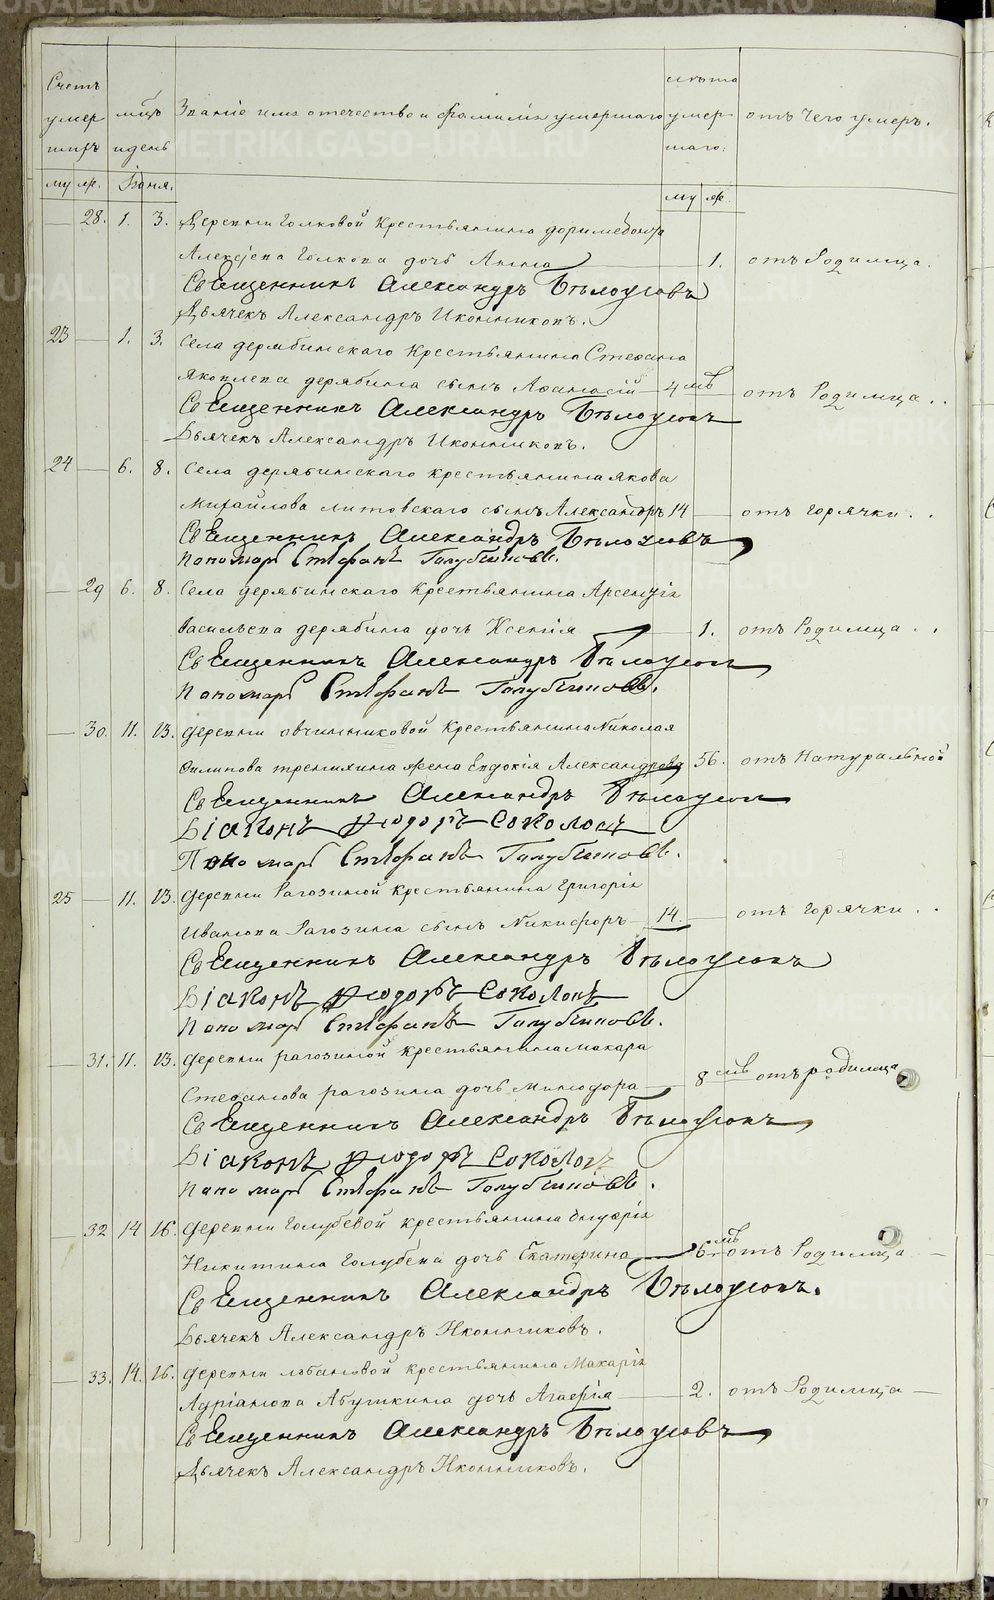 Счетъ умершихъ
мцъ и день
Званіе имя отечество и фамилія умершаго
лѣта умершаго.
отъ Чего умеръ.
му же.
Іюня.
му же.
28. 1. 3. Деревни Голковой Крестьянина
Алексѣева Голкова дочь Анна 1. отъ Родимца.
Священникъ Александръ Бѣлоусовъ
Дьячекъ Александръ Иконниковъ.
23 1. 3. Села дерябинскаго Крестьянина Стефана
Яковлева дерябина сынъ Афанасій 4 мѣ отъ Родимца..
Священникъ Александръ Бѣлоусовъ
Дьячекъ Александръ Иконниковъ.
24 6. 8. Села дерябинскаго крестьянина якова
Михайлова литовскаго сынъ Александръ 14 отъ горячки..
Священникъ Александръ Бѣлоусовъ
Пономарь Стефанъ Голубчиковъ.
29 6. 8. Села дерябинскаго Крестьянина Арсенгія
Васильева дерябина дочь Ксенія 1. отъ Родимца..
Священникъ Александръ Бѣлоусовъ
Пономарь Стефанъ Голубчиковъ.
30. 11. 13. деревни овчинниковой Крестьянина Николая
Филипова тренихина жена Евдокія Александрова 56. отъ Натуральной
Священникъ Александръ Бѣлоусовъ
Діаконъ Ѳеодоръ Соколовъ
Пономарь Стефанъ Голубчиковъ.
25 11. 13. деревни Рагозиной Крестьянина Григорія
Иванова Рагозина сынъ Никифоръ 14 отъ горячки..
Священникъ Александръ Бѣлоусовъ
Діаконъ Ѳеодоръ Соколовъ
Пономарь Стефанъ Голубчиковъ.
31. 11. 13. деревни рагозиной крестьянина макара
Стефанова рагозина дочь минодора 8 мѣ отъ родимца
Священникъ Александръ Бѣлоусовъ
Діаконъ Ѳеодоръ Соколовъ
Пономарь Стефанъ Голубчиковъ.
32 14 16. деревни Голубевой крестьянина
Никитина Голубева дочь Екатерина 6 мѣ отъ Родимца
Священникъ Александръ Бѣлоусовъ.
Дьячекъ Александръ Иконниковъ.
33. 14. 16. деревни лобановой крестьянина Макарія
Адріанова Абушкина дочь Агафія 2. отъ Родимца
Священникъ Александръ Бѣлоусовъ
Дьячекъ Александръ Иконниковъ.
METRIKI.GASO-URAL.RU